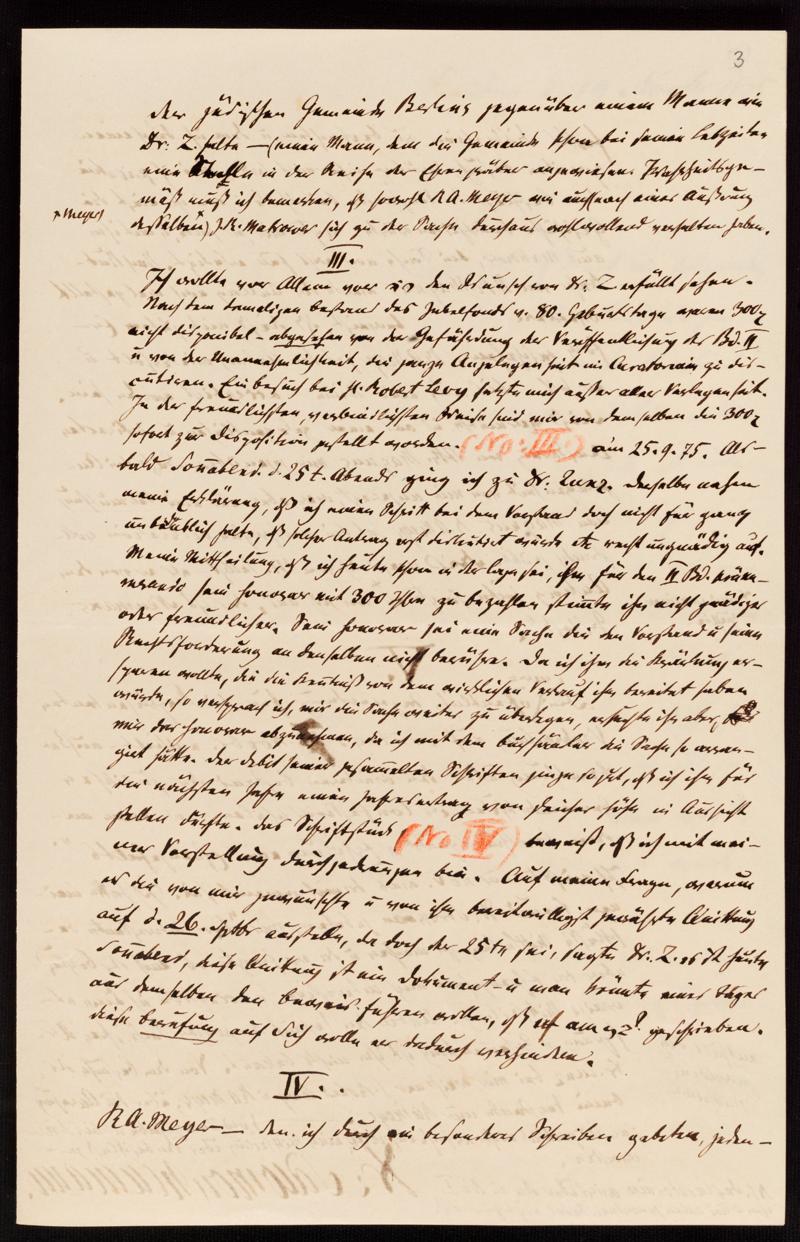 3
der jüdischen Gemeinde Berlins gegenüber einem Manne wie
Dr: Z. hatte — (einem Mann, dem die Gemeinde schon bei seinen Lebzeiten
eine Stelle in der Reihe der Ehrengräber angewiesen. Wahrheitsge-
mäß muß ich bemerken, daß sowohl R.A. Meyer wie auch nach einer Äußerung
desselben J.R. Makower sich zu der Sache durchaus wohlwollend verhalten haben.
Meyers
III.
Ich wollte vor Allem den Wunsch von Dr. Z erfüllt sehen.
Nach dem damaligen Bestand des Jubelfonds v. 80. Geburtstage waren 300
nicht disponibel — abgesehen von der Gefährdung der Veröffentlichung des Bd. II
u von der Unannehmlichkeit, die ganze Angelegenheit im Curatorium zu dis-
cutiren. Ein Besuch bei H. Robert Levy setzte mich außer aller Verlegenheit.
In der freundlichsten, verbindlichsten Weise sind mir von demselben die 300
sofort zur Disposition gestellt worden. (No. III.) am 25.9.75. Als-
bald Sonnabend d. 25t. Abends ging ich zu Dr. Zunz. Derselbe nahm
meine Erklärung, daß ich einen Schritt bei dem Vorstand doch nicht für ganz
unbedenklich halte, daß solcher Antrag erst diskutirt würde etc recht ungnädig auf.
Meine Mittheilung, daß ich heute schon in der Lage sei, ihm für den II Bd. pränu-
merando sein Honorar mit 300 Thlr zu bezahlen stimmte ihn nicht gnädiger
oder freundlicher. Sein Honorar sei eine Sache die den Vorstand u seine
Rechtsforderung an denselben nicht berühre. Da ich ihm die Kränkung er-
sparen wollte, die die Kenntniß von dem wirklichen Verlauf ihm bereitet haben
würde, so versprach ich, mir die Sache weiter zu überlegen, ersuchte ihn aber,
mir das Honorar abzunehmen, da ich mit dem Buchhändler die Sache so arran-
girt hätte. Der Debit seiner gesammelten Schriften ginge so gut, daß ich ihm für
die nächsten Jahre einen Jahresertrag von gleicher Höhe in Aussicht
stellen dürfte. Das Schriftstück (No IV) beweist, daß ich mit mei-
ner Vorstellung durchgedrungen bin. Auf meine Frage, warum
er die von mir gewünschte u von ihm bereitwilligst gewährte Quittung
auf d. 26. Septbr ausstelle, da doch der 25te sei, sagte Dr. Z. es ist heute
Sonnabend, diese Quittung ist ein Dokument — u man könnte eines Tages
aus demselben den Beweis führen wollen, daß geschrieben.
Diese Berufung auf Sich wolle er dadurch verhindern.
IV.
R.A. Meyer — den ich durch ein besonderes Schreiben gebeten, jeden-